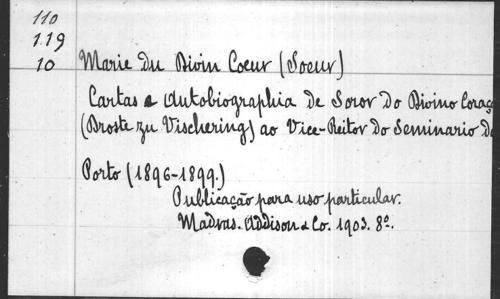 110
119
10 Marie du Divin Coeur (Soeur)
Cartas e Autobiographia de Soror do Divino Coraç
(Droste zu Vischering) ao Vice-Reitor do Seminario do
Porto (1896-1899.)
Publicação para uso particular.
Madras. Addison & Co. 1903. 8º.